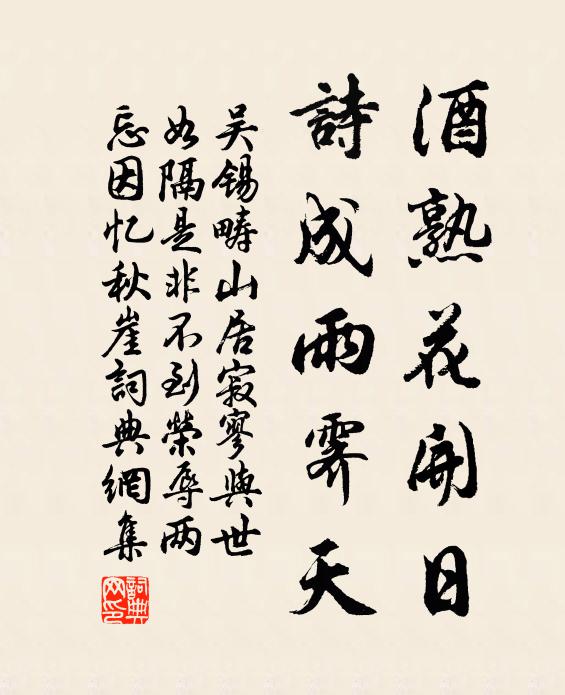 酒熟花開日
詩成雨霽天
吴锡畴山居寂寥與世
如隔是非不到榮辱两
忘因忆秋崖詞典網集
詞典
网印